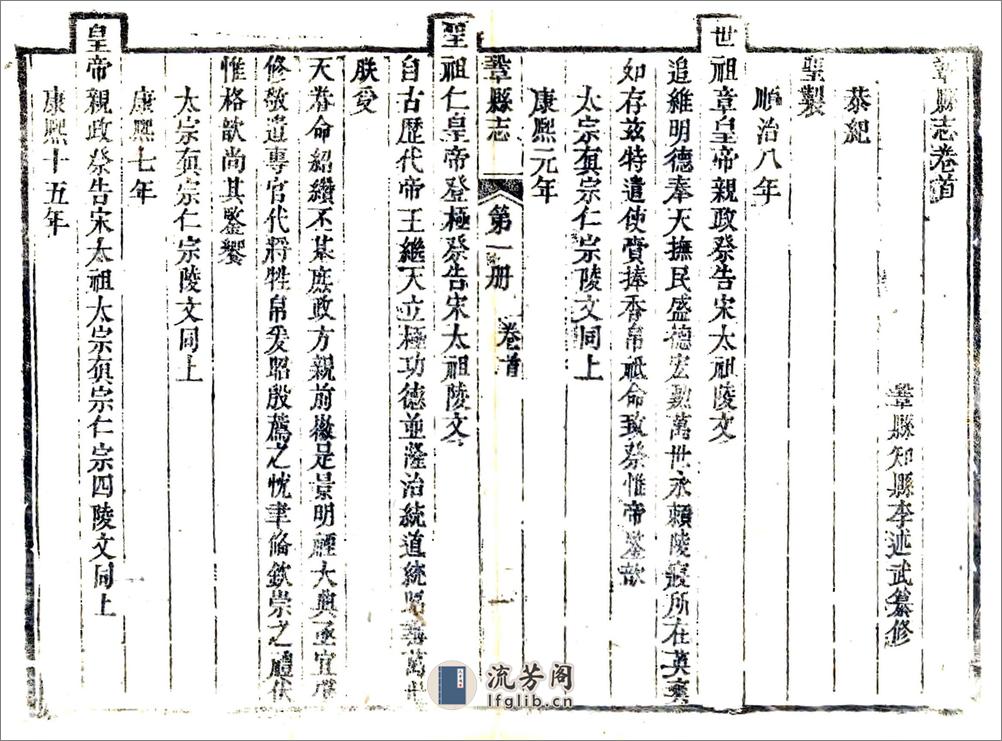 鞏縣志卷首
鞏縣知縣李述武纂修
恭紀
聖製
順治八年
世祖章皇帝親政祭告宋太祖陵文
追維明德奉天撫民盛德宏勲萬世永賴陵寢所在英靈
如存兹特遣使賫捧香帛祇命致祭惟帝鑒歆
太宗眞宗仁宗陵文同上
康熙元年
鞏縣志 第一册 卷首 一
聖祖仁皇帝登極祭告宋太祖陵文
自古歴代帝王繼天立極功德並隆治統道統昭垂萬世
朕受
天眷命紹纘丕基庶政方親前徽是景明禋大典亟宜肇
修敬遣專官代將牲帛爰昭殷薦之忱聿脩欽崇之禮伏
惟格歆尚其鑒饗
太宗眞宗仁宗陵文同上
康熙七年
皇帝親政祭告宋太祖太宗眞宗仁宗四陵文同上
康熙十五年
流芳阁
lfglib.cn